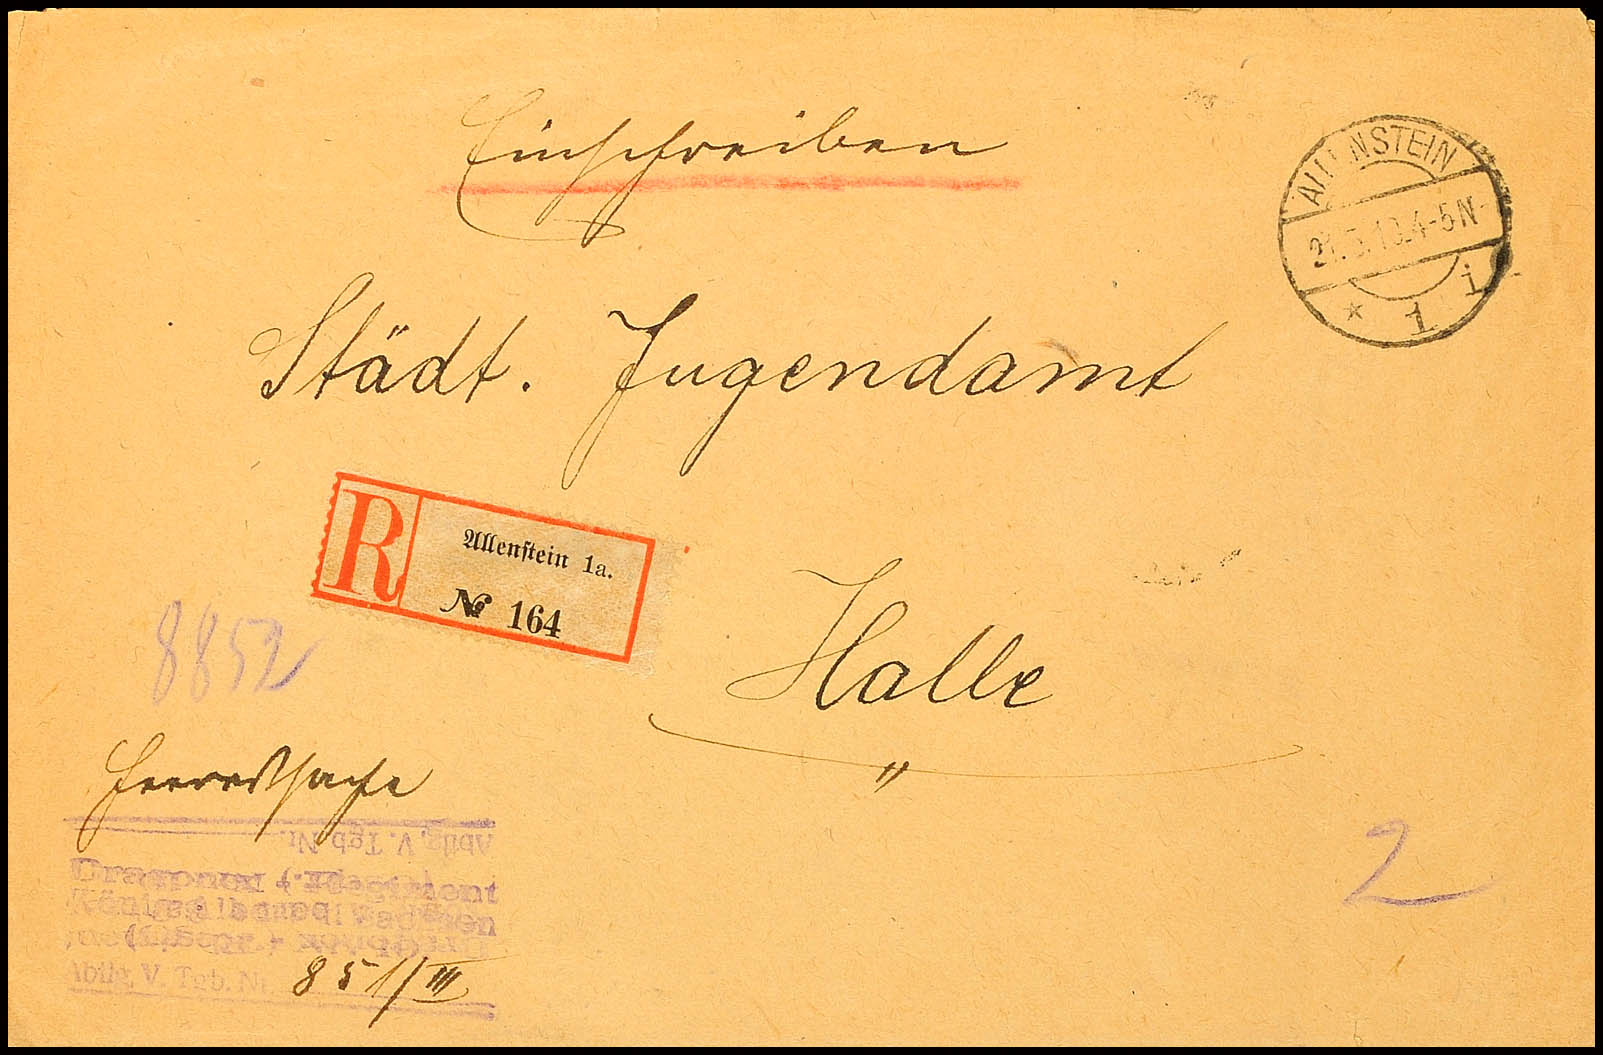 Einschreiben
ALLENSTEIN
4-5N
* 1 i
Städt. Jugendamt
R Allenstein 1a.
№ 164
Halle
"
8852
Heeressache
Abtlg. V. Tgb. Nr.
Abtlg. V. Tgb. Nr. 851/III
2